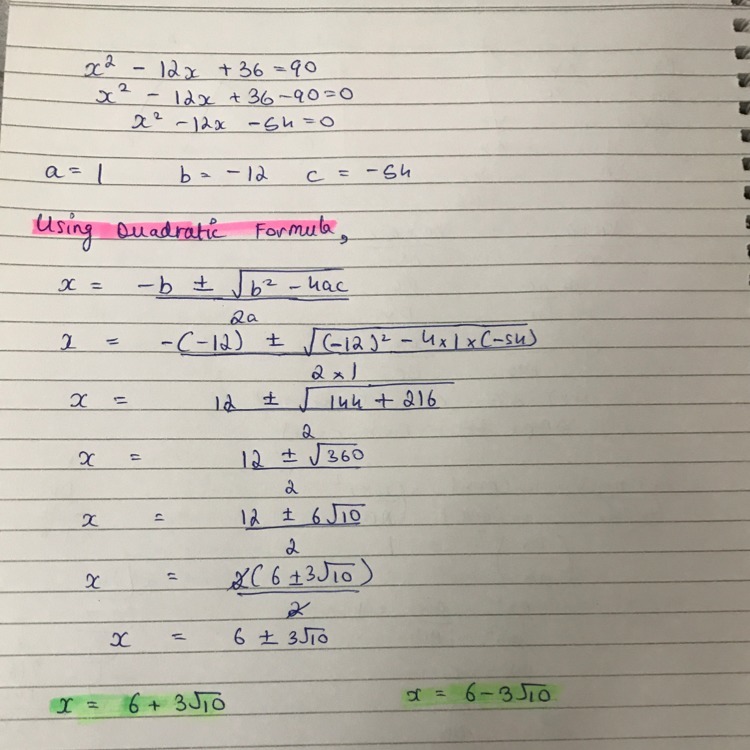 x² - 12x + 36 = 90
x² - 12x + 36 - 90 = 0
x² - 12x - 54 = 0
a = 1 b = -12 c = -54
Using Quadratic Formula,
x = -b ± √(b² - 4ac) / 2a
x = -(-12) ± √((-12)² - 4×1×(-54)) / 2×1
x = 12 ± √(144 + 216) / 2
x = 12 ± √360 / 2
x = 12 ± 6√10 / 2
x = 2(6 ± 3√10) / 2
x = 6 ± 3√10
x = 6 + 3√10 x = 6 - 3√10